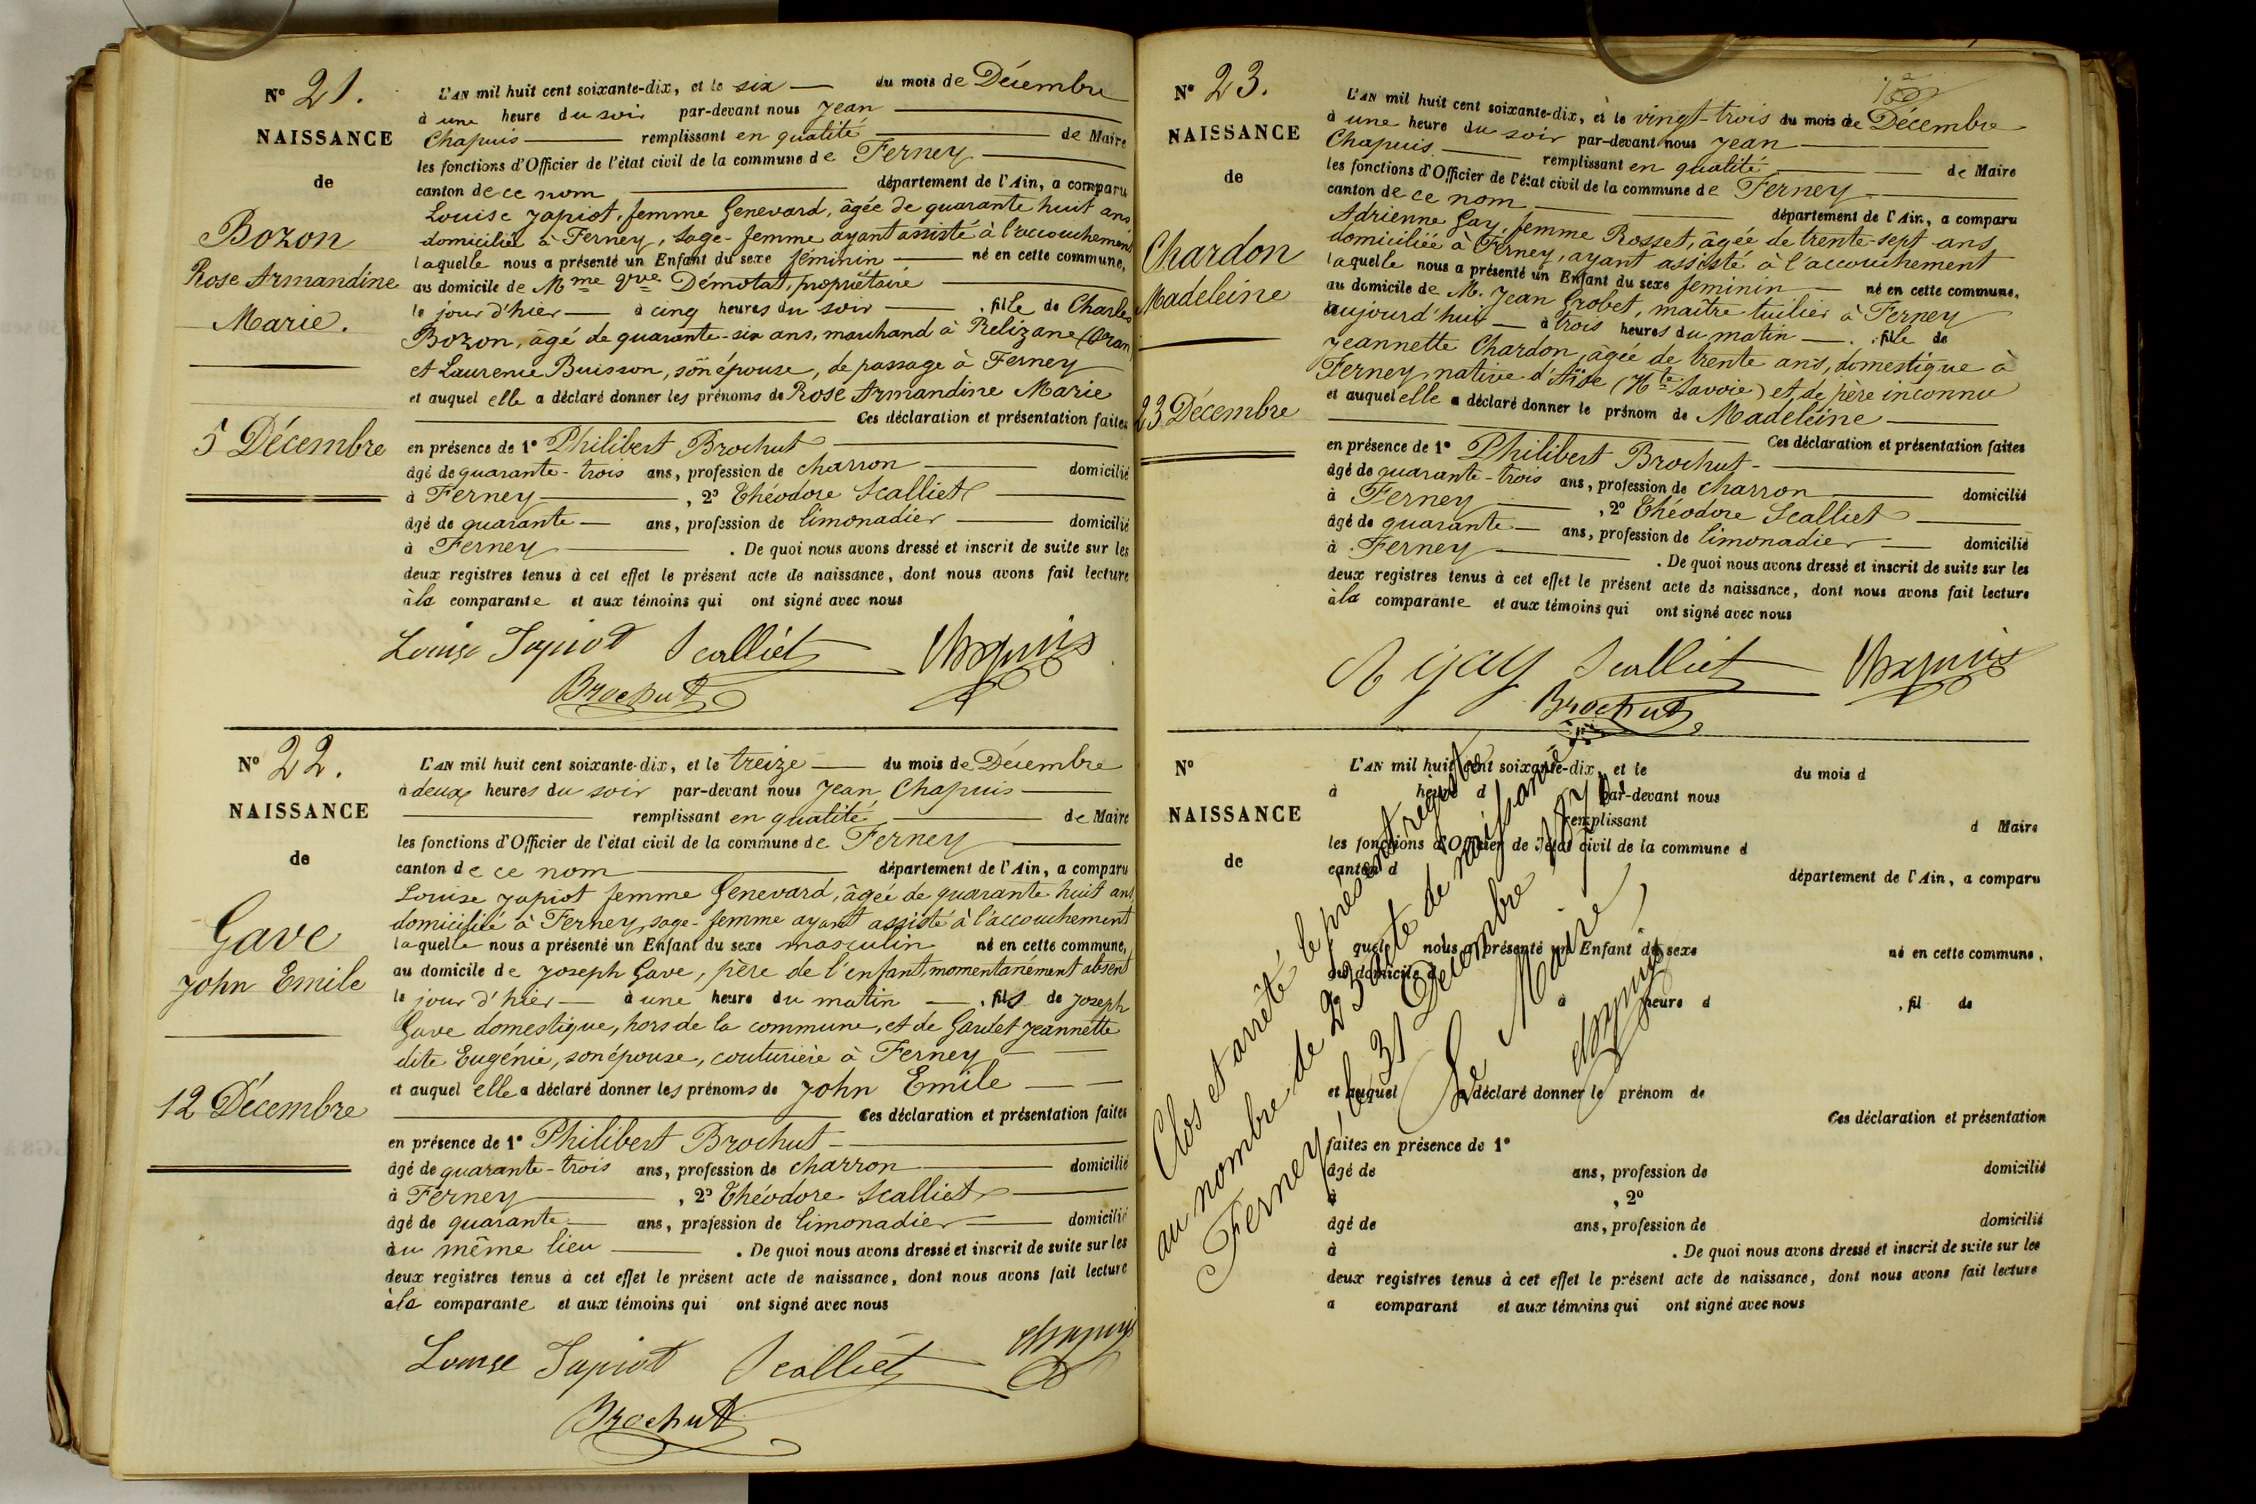 N° 21.
NAISSANCE
de
Bozon
Rose Armandine
Marie.
5 Décembre
L'AN mil huit cent soixante-dix, et le six du mois de Décembre
à une heure du soir par-devant nous Jean
Chapuis remplissant en qualité de Maire
les fonctions d'Officier de l'état civil de la commune de Ferney
canton de ce nom département de l'Ain, a comparu
Louise Japiot, femme Genevard, âgée de quarante huit ans
domiciliée à Ferney, sage-femme ayant assisté à l'accouchement
laquelle nous a présenté un Enfant du sexe féminin né en cette commune,
au domicile de Mme Vve Démotat, propriétaire
le jour d'hier à cinq heures du soir , fille de Charles
Bozon, âgé de quarante-six ans, marchand à Relizane (Oran
et Laurence Buisson, son épouse, de passage à Ferney
et auquel elle a déclaré donner les prénoms de Rose Armandine Marie
Ces déclaration et présentation faites
en présence de 1° Philibert Brochut
âgé de quarante-trois ans, profession de charron domicilié
à Ferney , 2° Théodore Scalliet
âgé de quarante ans, profession de limonadier domicilié
à Ferney . De quoi nous avons dressé et inscrit de suite sur les
deux registres tenus à cet effet le présent acte de naissance, dont nous avons fait lecture
à la comparante et aux témoins qui ont signé avec nous
Louise Japiot Scalliet Chapuis
Brochut
N° 22.
NAISSANCE
de
Gave
John Emile
12 Décembre
L'AN mil huit cent soixante-dix, et le treize du mois de Décembre
à deux heures du soir par-devant nous Jean Chapuis
remplissant en qualité de Maire
les fonctions d'Officier de l'état civil de la commune de Ferney
canton de ce nom département de l'Ain, a comparu
Louise Japiot femme Genevard, âgée de quarante huit ans,
domiciliée à Ferney, sage-femme ayant assisté à l'accouchement
laquelle nous a présenté un Enfant du sexe masculin né en cette commune,
au domicile de Joseph Gave, père de l'enfant, momentanément absent
le jour d'hier à une heure du matin , fils de Joseph
Gave domestique, hors de la commune, et de Gardet Jeannette
dite Eugénie, son épouse, couturière à Ferney
et auquel elle a déclaré donner les prénoms de John Emile
Ces déclaration et présentation faites
en présence de 1° Philibert Brochut
âgé de quarante-trois ans, profession de charron domicilié
à Ferney , 2° Théodore Scalliet
âgé de quarante ans, profession de limonadier domicilié
au même lieu . De quoi nous avons dressé et inscrit de suite sur les
deux registres tenus à cet effet le présent acte de naissance, dont nous avons fait lecture
à la comparante et aux témoins qui ont signé avec nous
Louise Japiot Scalliet Chapuis
Brochut
N° 23.
NAISSANCE
de
Chardon
Madeleine
23 Décembre
L'AN mil huit cent soixante-dix, et le vingt-trois du mois de Décembre
à une heure du soir par-devant nous Jean
Chapuis remplissant en qualité de Maire
les fonctions d'Officier de l'état civil de la commune de Ferney
canton de ce nom département de l'Ain, a comparu
Adrienne Gay, femme Rosset, âgée de trente-sept ans,
domiciliée à Ferney, ayant assisté à l'accouchement
laquelle nous a présenté un Enfant du sexe féminin né en cette commune,
au domicile de M. Jean Grobet, maître tuilier à Ferney
aujourd'hui à trois heures du matin , fille de
Jeannette Chardon, âgée de trente ans, domestique à
Ferney native d'Aïse (Hte Savoie) et de père inconnu
et auquel elle a déclaré donner le prénom de Madeleine
Ces déclaration et présentation faites
en présence de 1° Philibert Brochut
âgé de quarante-trois ans, profession de charron domicilié
à Ferney , 2° Théodore Scalliet
âgé de quarante ans, profession de limonadier domicilié
à Ferney . De quoi nous avons dressé et inscrit de suite sur les
deux registres tenus à cet effet le présent acte de naissance, dont nous avons fait lecture
à la comparante et aux témoins qui ont signé avec nous
A Gay Scalliet Chapuis
Brochut
N°
NAISSANCE
de
L'AN mil huit cent soixante-dix, et le du mois d
à heure d par-devant nous
remplissant d Maire
les fonctions d'Officier de l'état civil de la commune d
canton d département de l'Ain, a comparu
quel nous a présenté un Enfant du sexe né en cette commune,
au domicile d
à heure d , fil de
et auquel a déclaré donner le prénom de
Ces déclaration et présentation
faites en présence de 1°
âgé de ans, profession de domicilié
à , 2°
âgé de ans, profession de domicilié
à . De quoi nous avons dressé et inscrit de suite sur les
deux registres tenus à cet effet le présent acte de naissance, dont nous avons fait lecture
a comparant et aux témoins qui ont signé avec nous
Clos et arrêté le présent registre
au nombre de 23 acte de naissance
Ferney, le 31 Décembre 1870.
Le Maire,
Chapuis